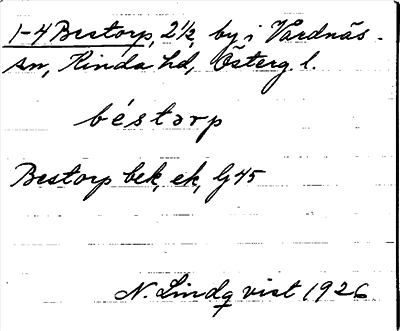 1-4 Bestorp, 2 1/2, by i Vårdnäs
sn, Kinda hd, Österg. l.
béstɔrp
Bestorp bek, ek, Gj 45
N. Lindqvist 1926